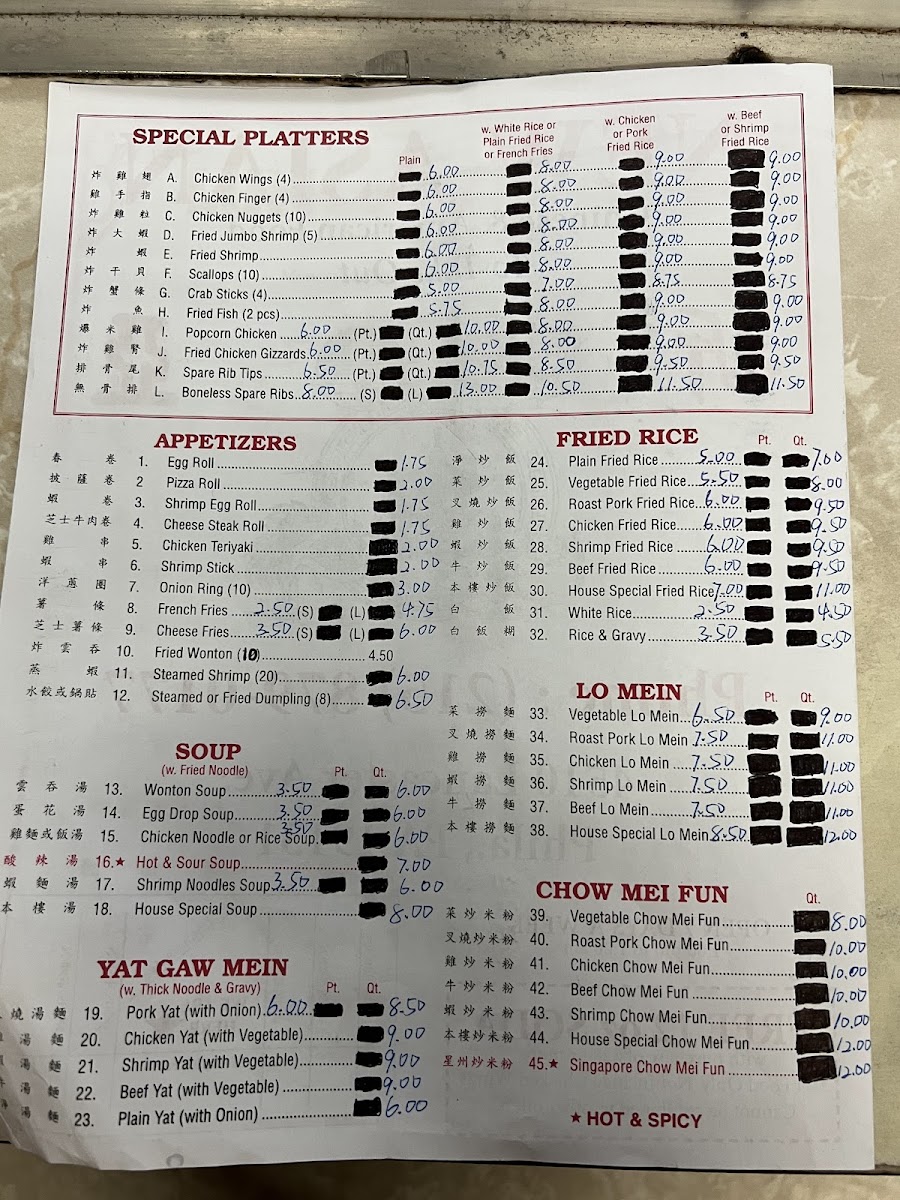 SPECIAL PLATTERS
Plain
w. White Rice or Plain Fried Rice or French Fries
w. Chicken or Pork Fried Rice
w. Beef or Shrimp Fried Rice
炸雞翅 A. Chicken Wings (4) 6.00 8.00 9.00 9.00
雞手指 B. Chicken Finger (4) 6.00 8.00 9.00 9.00
炸雞粒 C. Chicken Nuggets (10) 6.00 8.00 9.00 9.00
炸大蝦 D. Fried Jumbo Shrimp (5) 6.00 8.00 9.00 9.00
炸蝦 E. Fried Shrimp 6.00 8.00 9.00 9.00
炸干貝 F. Scallops (10) 6.00 8.00 9.00 9.00
炸蟹條 G. Crab Sticks (4) 5.00 7.00 8.75 8.75
炸魚 H. Fried Fish (2 pcs) 5.75 8.00 9.00 9.00
爆米雞 I. Popcorn Chicken 6.00 (Pt.) (Qt.) 10.00 8.00 9.00 9.00
炸雞腎 J. Fried Chicken Gizzards 6.00 (Pt.) (Qt.) 10.00 8.00 9.00 9.00
排骨尾 K. Spare Rib Tips 6.50 (Pt.) (Qt.) 10.75 8.50 9.50 9.50
無骨排 L. Boneless Spare Ribs 8.00 (S) (L) 13.00 10.50 11.50 11.50
APPETIZERS
春卷 1. Egg Roll 1.75
披薩卷 2 Pizza Roll 2.00
蝦卷 3. Shrimp Egg Roll 1.75
芝士牛肉卷 4. Cheese Steak Roll 1.75
雞串 5. Chicken Teriyaki 2.00
蝦串 6. Shrimp Stick 2.00
洋蔥圈 7. Onion Ring (10) 3.00
薯條 8. French Fries 2.50 (S) (L) 4.75
芝士薯條 9. Cheese Fries 3.50 (S) (L) 6.00
炸雲吞 10. Fried Wonton (10) 4.50
蒸蝦 11. Steamed Shrimp (20) 6.00
水餃或鍋貼 12. Steamed or Fried Dumpling (8) 6.50
SOUP
(w. Fried Noodle) Pt. Qt.
雲吞湯 13. Wonton Soup 3.50 6.00
蛋花湯 14. Egg Drop Soup 3.50 6.00
雞麵或飯湯 15. Chicken Noodle or Rice Soup 3.50 6.00
酸辣湯 16.★ Hot & Sour Soup 7.00
蝦麵湯 17. Shrimp Noodles Soup 3.50 6.00
本樓湯 18. House Special Soup 8.00
YAT GAW MEIN
(w. Thick Noodle & Gravy) Pt. Qt.
燒湯麵 19. Pork Yat (with Onion) 6.00 8.50
湯麵 20. Chicken Yat (with Vegetable) 9.00
湯麵 21. Shrimp Yat (with Vegetable) 9.00
湯麵 22. Beef Yat (with Vegetable) 9.00
湯麵 23. Plain Yat (with Onion) 6.00
FRIED RICE Pt. Qt.
淨炒飯 24. Plain Fried Rice 5.00 7.00
菜炒飯 25. Vegetable Fried Rice 5.50 8.00
叉燒炒飯 26. Roast Pork Fried Rice 6.00 9.50
雞炒飯 27. Chicken Fried Rice 6.00 9.50
蝦炒飯 28. Shrimp Fried Rice 6.00 9.50
牛炒飯 29. Beef Fried Rice 6.00 9.50
本樓炒飯 30. House Special Fried Rice 7.00 11.00
白飯 31. White Rice 2.50 4.50
白飯糊 32. Rice & Gravy 3.50 5.50
LO MEIN Pt. Qt.
菜撈麵 33. Vegetable Lo Mein 6.50 9.00
叉燒撈麵 34. Roast Pork Lo Mein 7.50 11.00
雞撈麵 35. Chicken Lo Mein 7.50 11.00
蝦撈麵 36. Shrimp Lo Mein 7.50 11.00
牛撈麵 37. Beef Lo Mein 7.50 11.00
本樓撈麵 38. House Special Lo Mein 8.50 12.00
CHOW MEI FUN Qt.
菜炒米粉 39. Vegetable Chow Mei Fun 8.00
叉燒炒米粉 40. Roast Pork Chow Mei Fun 10.00
雞炒米粉 41. Chicken Chow Mei Fun 10.00
牛炒米粉 42. Beef Chow Mei Fun 10.00
蝦炒米粉 43. Shrimp Chow Mei Fun 10.00
本樓炒米粉 44. House Special Chow Mei Fun 12.00
星州炒米粉 45.★ Singapore Chow Mei Fun 12.00
★ HOT & SPICY